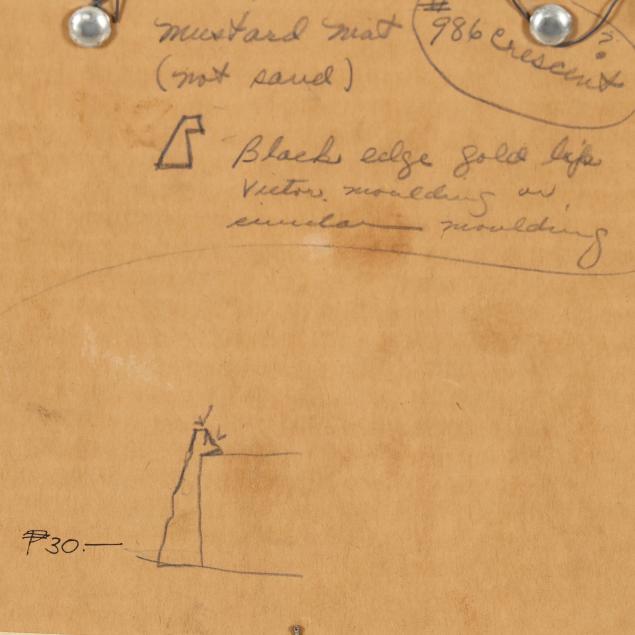 mustard mat
(not sand)
#986 Crescent ?
Black edge gold lip
Victor moulding or
similar moulding
₱30.—